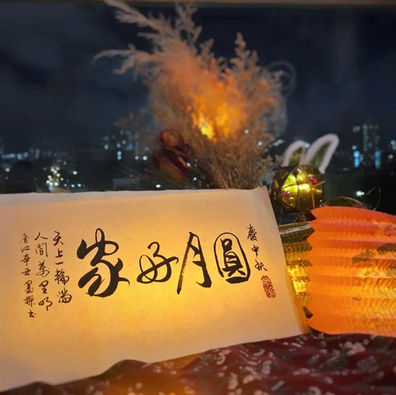 慶中秋
家好月圓
天上一輪滿
人間萬里明
香江辛丑